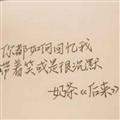 你都如何回忆我
带着笑或是很沉默
—奶茶《后来》